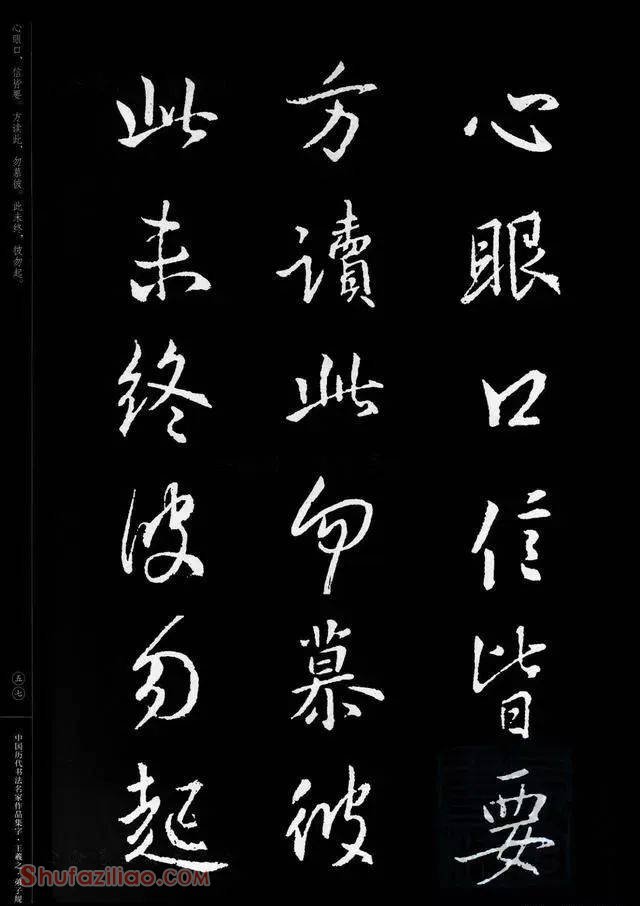 心眼口信皆要
方讀此勿慕彼
此未終彼勿起
心眼口，信皆要。方读此，勿慕彼。此未终，彼勿起。
五七
中国历代书法名家作品集字·王羲之 弟子规
Shufaziliao.com